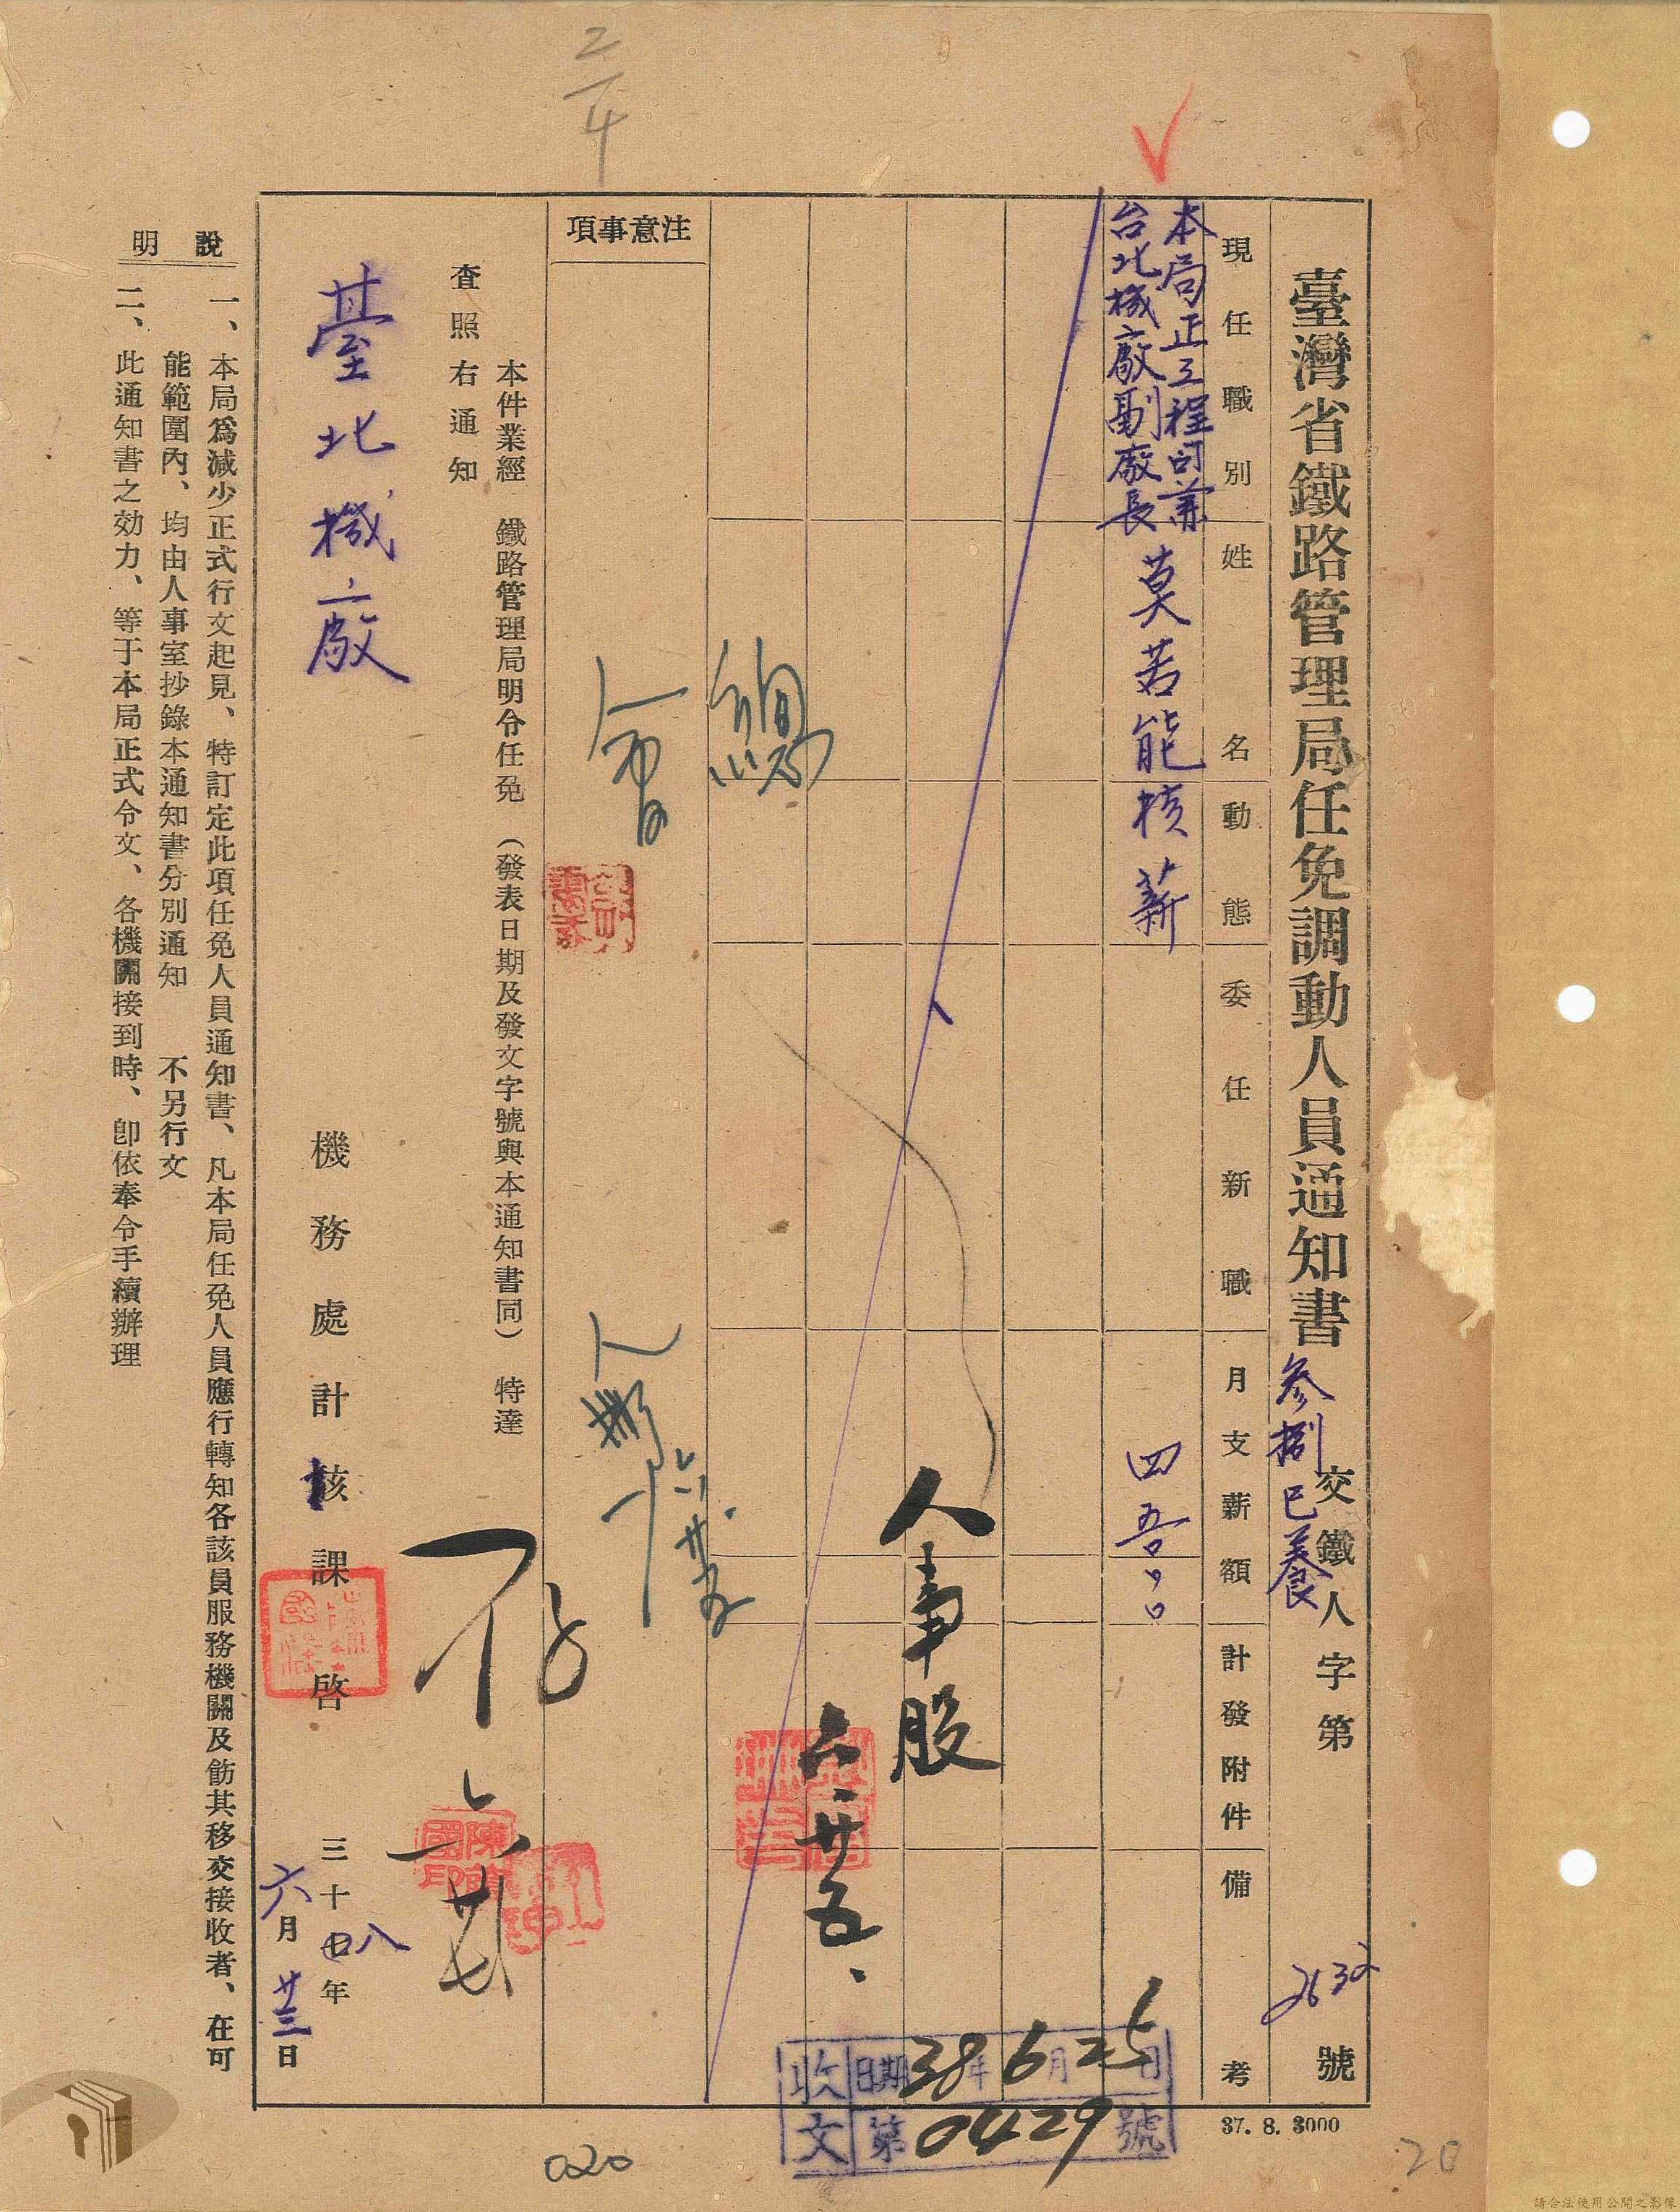 臺灣省鐵路管理局任免調動人員通知書
參捌巳養
交鐵人字第2632號
現任職別
姓名
動態
委任新職
月支薪額
計發附件
備考
本局正工程司兼
台北機廠副廠長
莫若能
核薪
四五〇、〇
人事股
六、廿五、
注意事項
本件業經 鐵路管理局明令任免 (發表日期及發文字號與本通知書同) 特達
查照右通知
臺北機廠
機務處計核課啓
三十八年
六月廿三日
說明
一、本局爲減少正式行文起見、特訂定此項任免人員通知書、凡本局任免人員應行轉知各該員服務機關及飭其移交接收者、在可
能範圍內、均由人事室抄錄本通知書分別通知 不另行文
二、此通知書之効力、等于本局正式令文、各機關接到時、卽依奉令手續辦理
收文
日期38年6月25日
第0429號
37. 8. 3000
020
20
請合法使用公開之影像